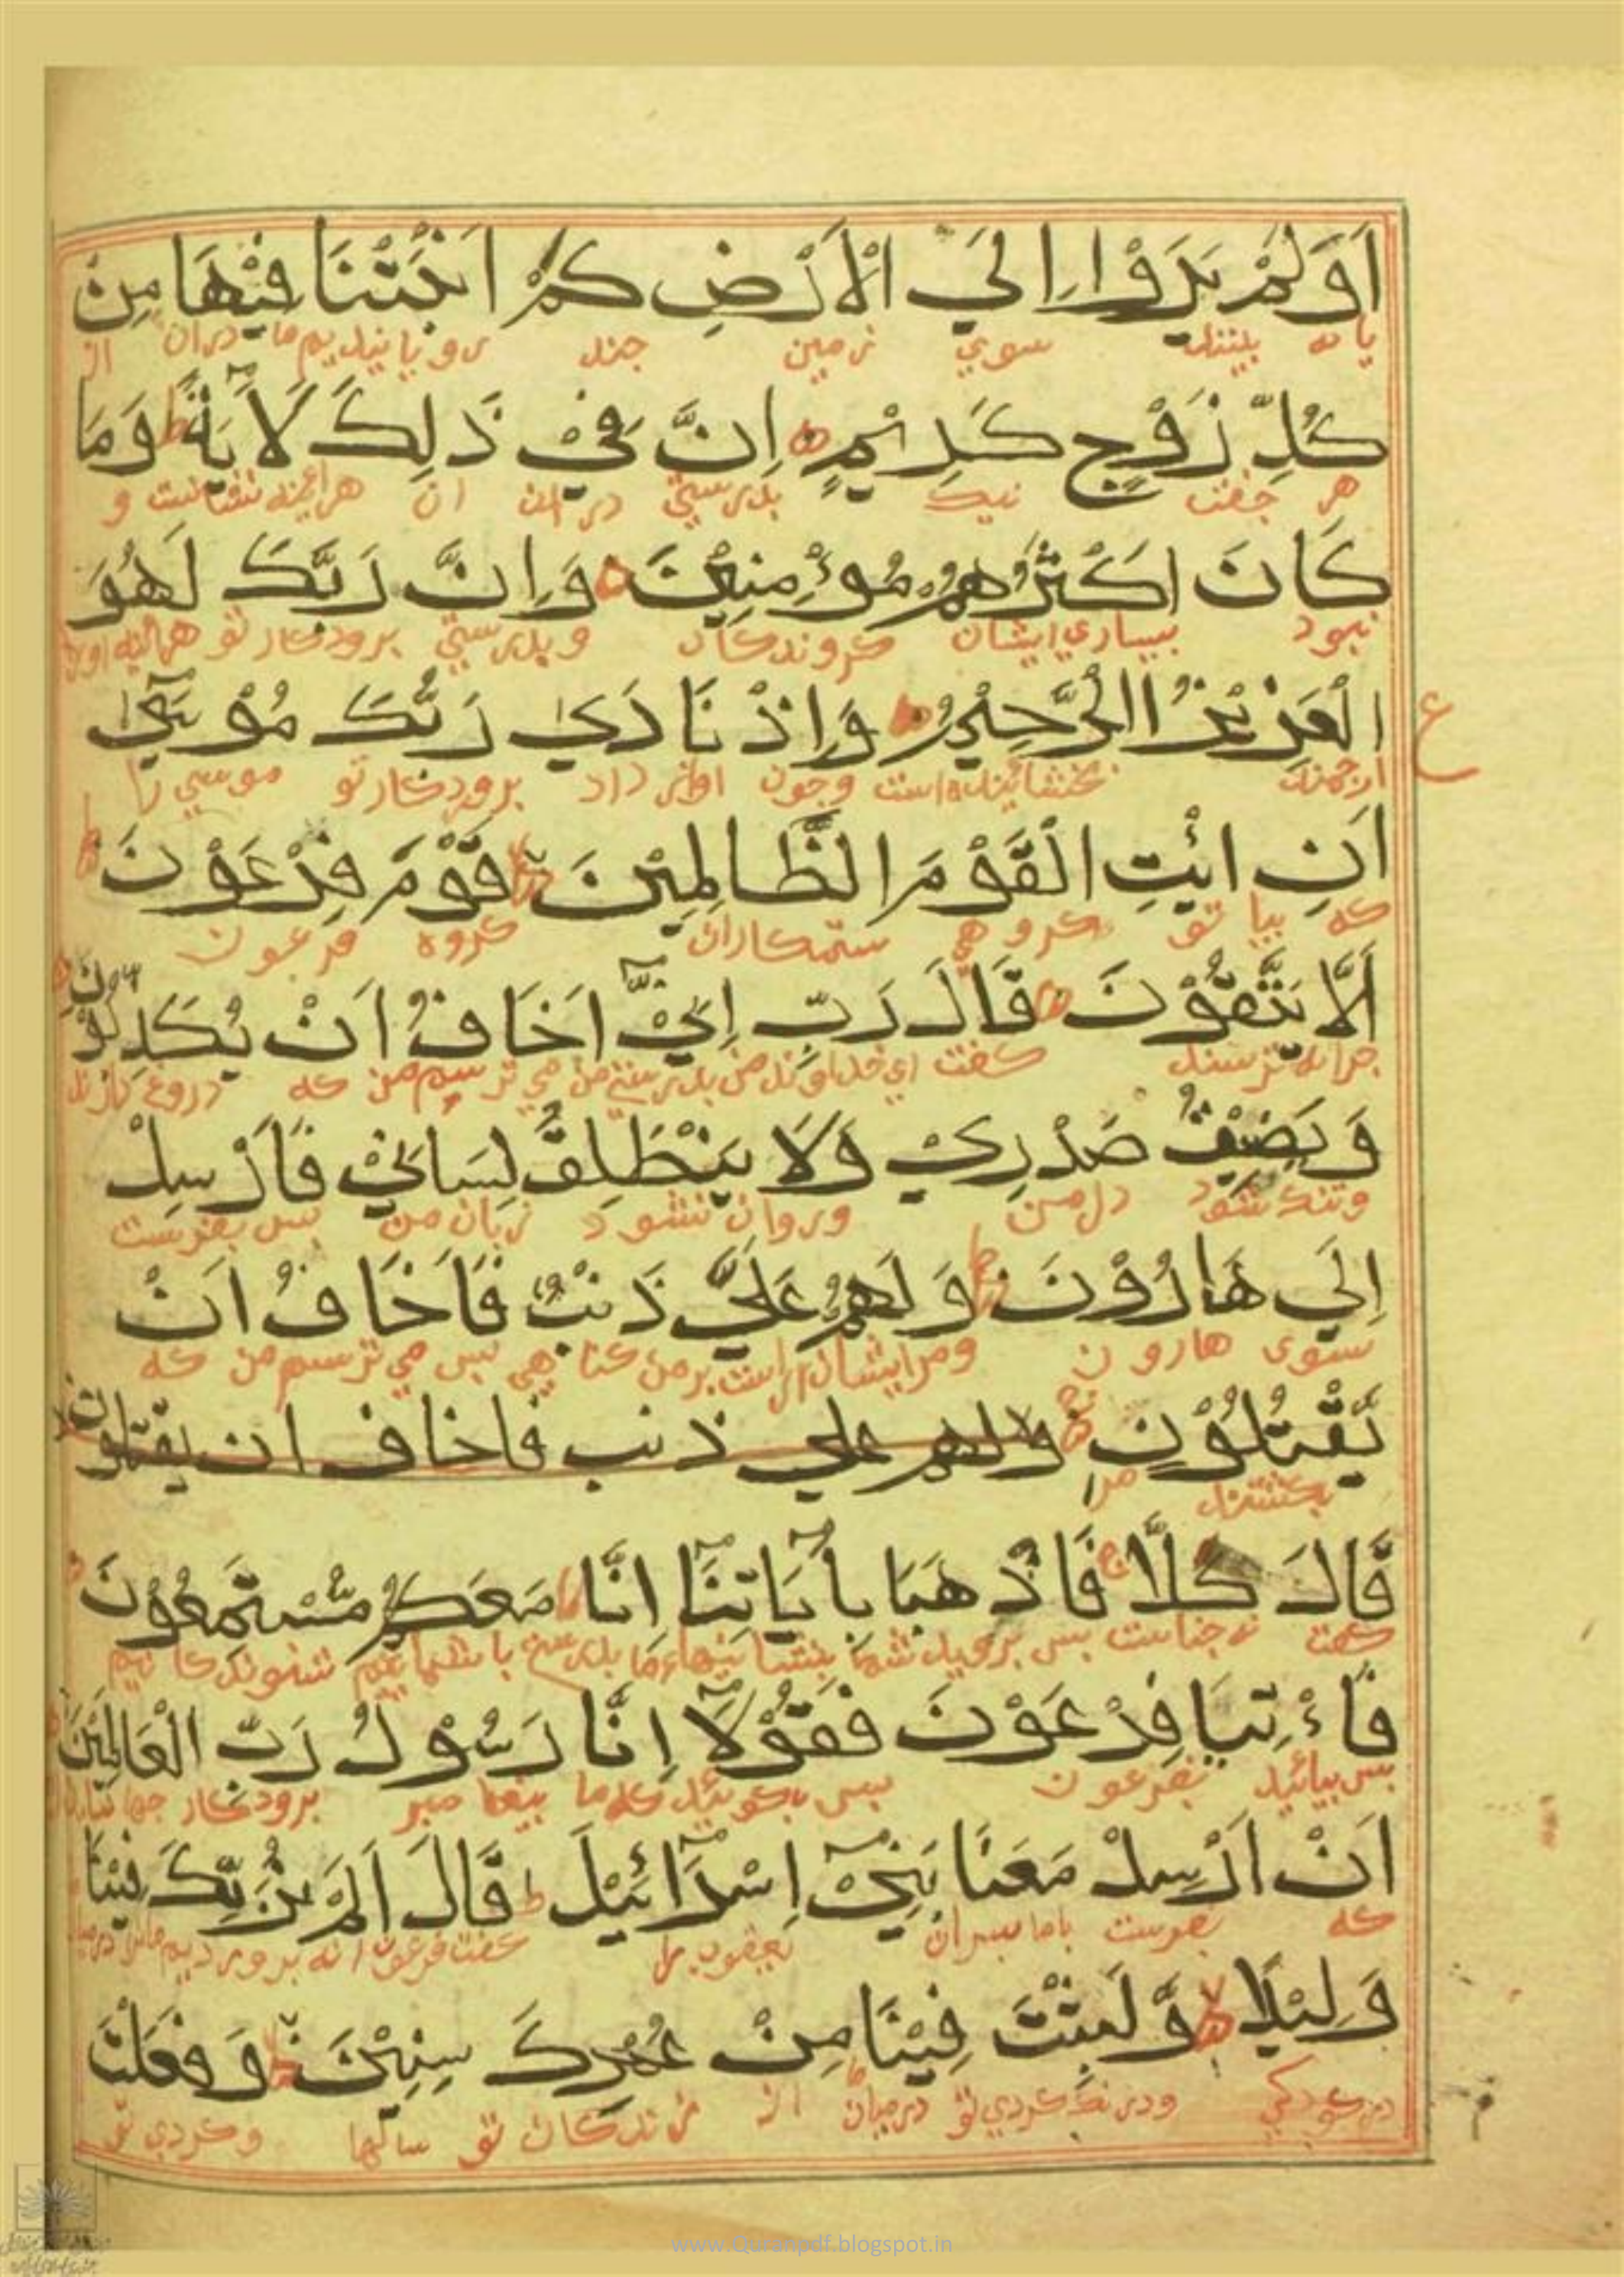 اَوَلَمْ يَرَوْا اِلَي الْاَرْضِ كَمْ اَنْبَتْنَا فِيْهَا مِنْ
يا نه بينند سوي زمين چند رويانيديم ما دران از
كُلِّ زَوْجٍ كَرِيْمٍ اِنَّ فِيْ ذَلِكَ لَاٰيَةً ط وَمَا
هر جفت نيك بدرستي دران ان هراينه نشانست و
كَانَ اَكْثَرُهُمْ مُوْءْمِنِيْنَ وَاِنَّ رَبَّكَ لَهُوَ
نبود بيساري ايشان كروندكان و بدرستي پروردكار تو هراينه اوست
الْعَزِيْزُ الرَّحِيْمُ وَاِذْ نَادَيٰ رَبُّكَ مُوْسٰٓي
ع
ارجمند بخشاينده است و چون اواز داد پروردكار تو موسي را
اَنِ ائْتِ الْقَوْمَ الظَّالِمِيْنَ لا قَوْمَ فِرْعَوْنَ ط
كه بيا تو كروهي ستمكاران كروه فرعون
اَلَّا يَتَّقُوْنَ قَالَ رَبِّ اِنِّيْٓ اَخَافُ اَنْ يُكَذِّبُوْنِ
چرا نه ترسند كفت اي خداوند من بدرستي من مي ترسم من كه دروغ دارند
وَيَضِيْقُ صَدْرِيْ وَلَا يَنْطَلِقُ لِسَانِيْ فَاَرْسِلْ
و تنك شود دل من و روان نشود زبان من پس بفرست
اِلَي هَارُوْنَ وَلَهُمْ عَلَيَّ ذَنْبٌ فَاَخَافُ اَنْ
سوي هارون و مر ايشان راست بر من كناهي پس مي ترسم من كه
يَّقْتُلُوْنِ ولهم علي ذنب فاخاف ان يقتلون
بكشند مرا
قَالَ كَلَّا ج فَاذْهَبَا بِاٰيَاتِنَآ اِنَّا مَعَكُمْ مُّسْتَمِعُوْنَ
كفت نه چنانست پس برويد شما بنشانيهاء ما بدرستي با شماييم شنوندكانيم
فَاءْتِيَا فِرْعَوْنَ فَقُوْلَآ اِنَّا رَسُوْلُ رَبِّ الْعَالَمِيْنَ
پس بيائيد بفرعون پس بكوئيد كه ما پيغامبر پروردكار جهانيان
اَنْ اَرْسِلْ مَعَنَا بَنِيْٓ اِسْرَآئِيْلَ ط قَالَ اَلَمْ نُرَبِّكَ فِيْنَا
كه بفرست باما پسران يعقوب را كفت فرعون انه پرورديم ما ترا درميان
وَلِيْدًا وَّلَبِثْتَ فِيْنَا مِنْ عُمُرِكَ سِنِيْنَ لا وَفَعَلْتَ
در كودكي و درنك كردي تو درميان ما از زندكان تو سالها و كردي تو
www.Quranpdf.blogspot.in